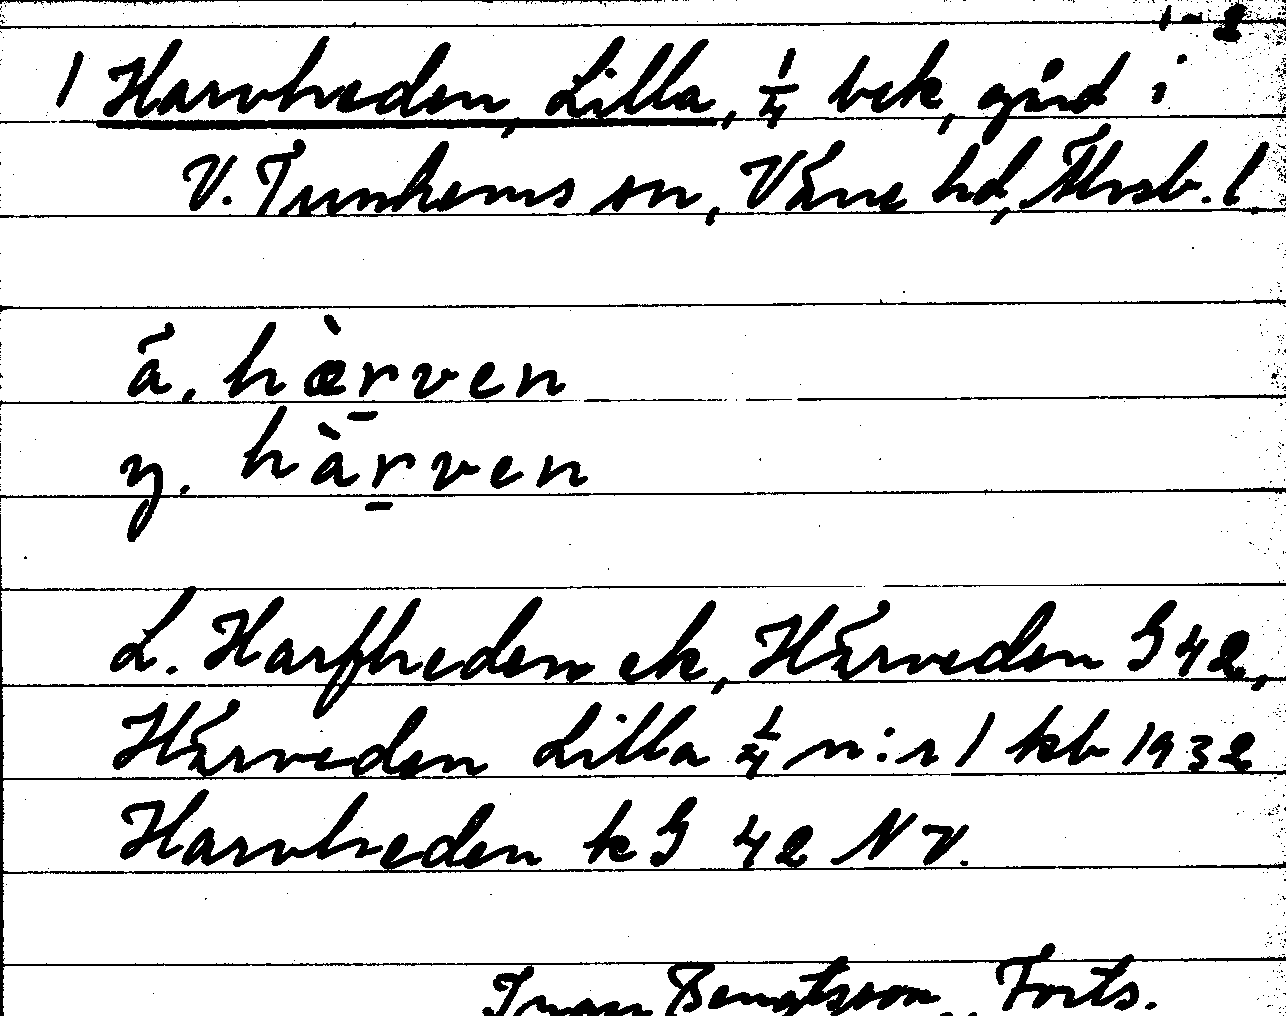 1-2
1 Harvheden, Lilla, 1/4 bek, gård i
V. Tunhems sn, Väne hd, Älvsb. l.
ä. hæ̀r̲ven
y. hàr̲ven
L. Harfheden ek, Härveden G 42,
Härveden Lilla 1/4 n:r 1 kb 1932
Harvheden kG 42 NV.
Bengtsson Forts.